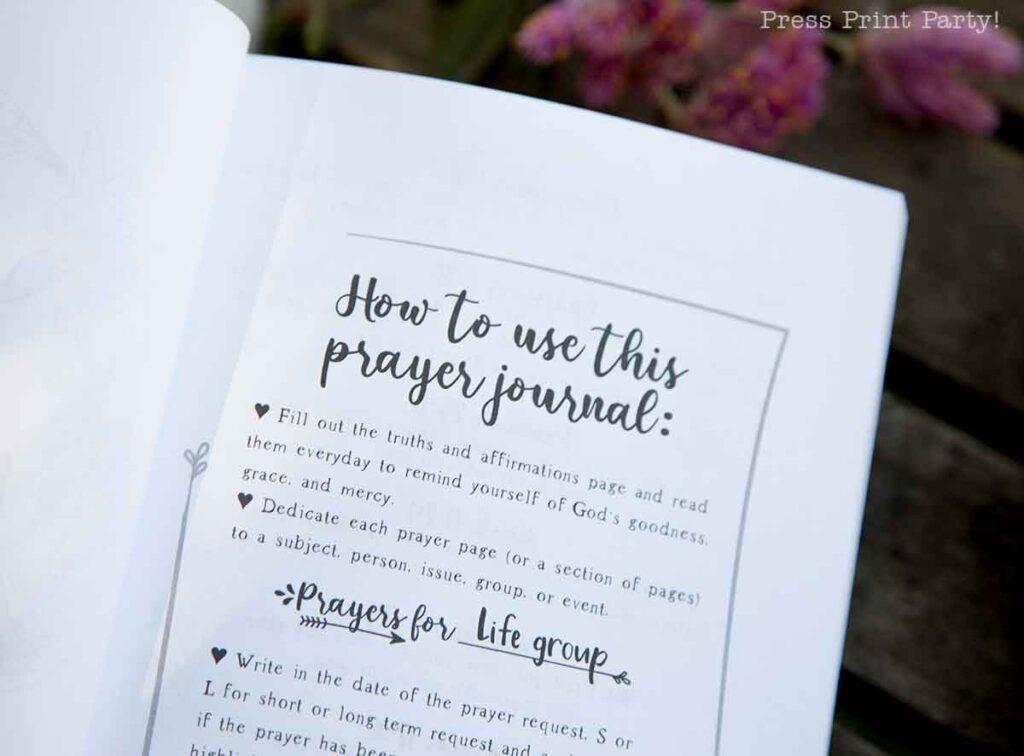 Press Print Party!
How to use this
prayer journal:
♥ Fill out the truths and affirmations page and read
them everyday to remind yourself of God's goodness,
grace, and mercy.
♥ Dedicate each prayer page (or a section of pages)
to a subject, person, issue, group, or event.
Prayers for Life group
♥ Write in the date of the prayer request, S or
L for short or long term request and
if the prayer has been